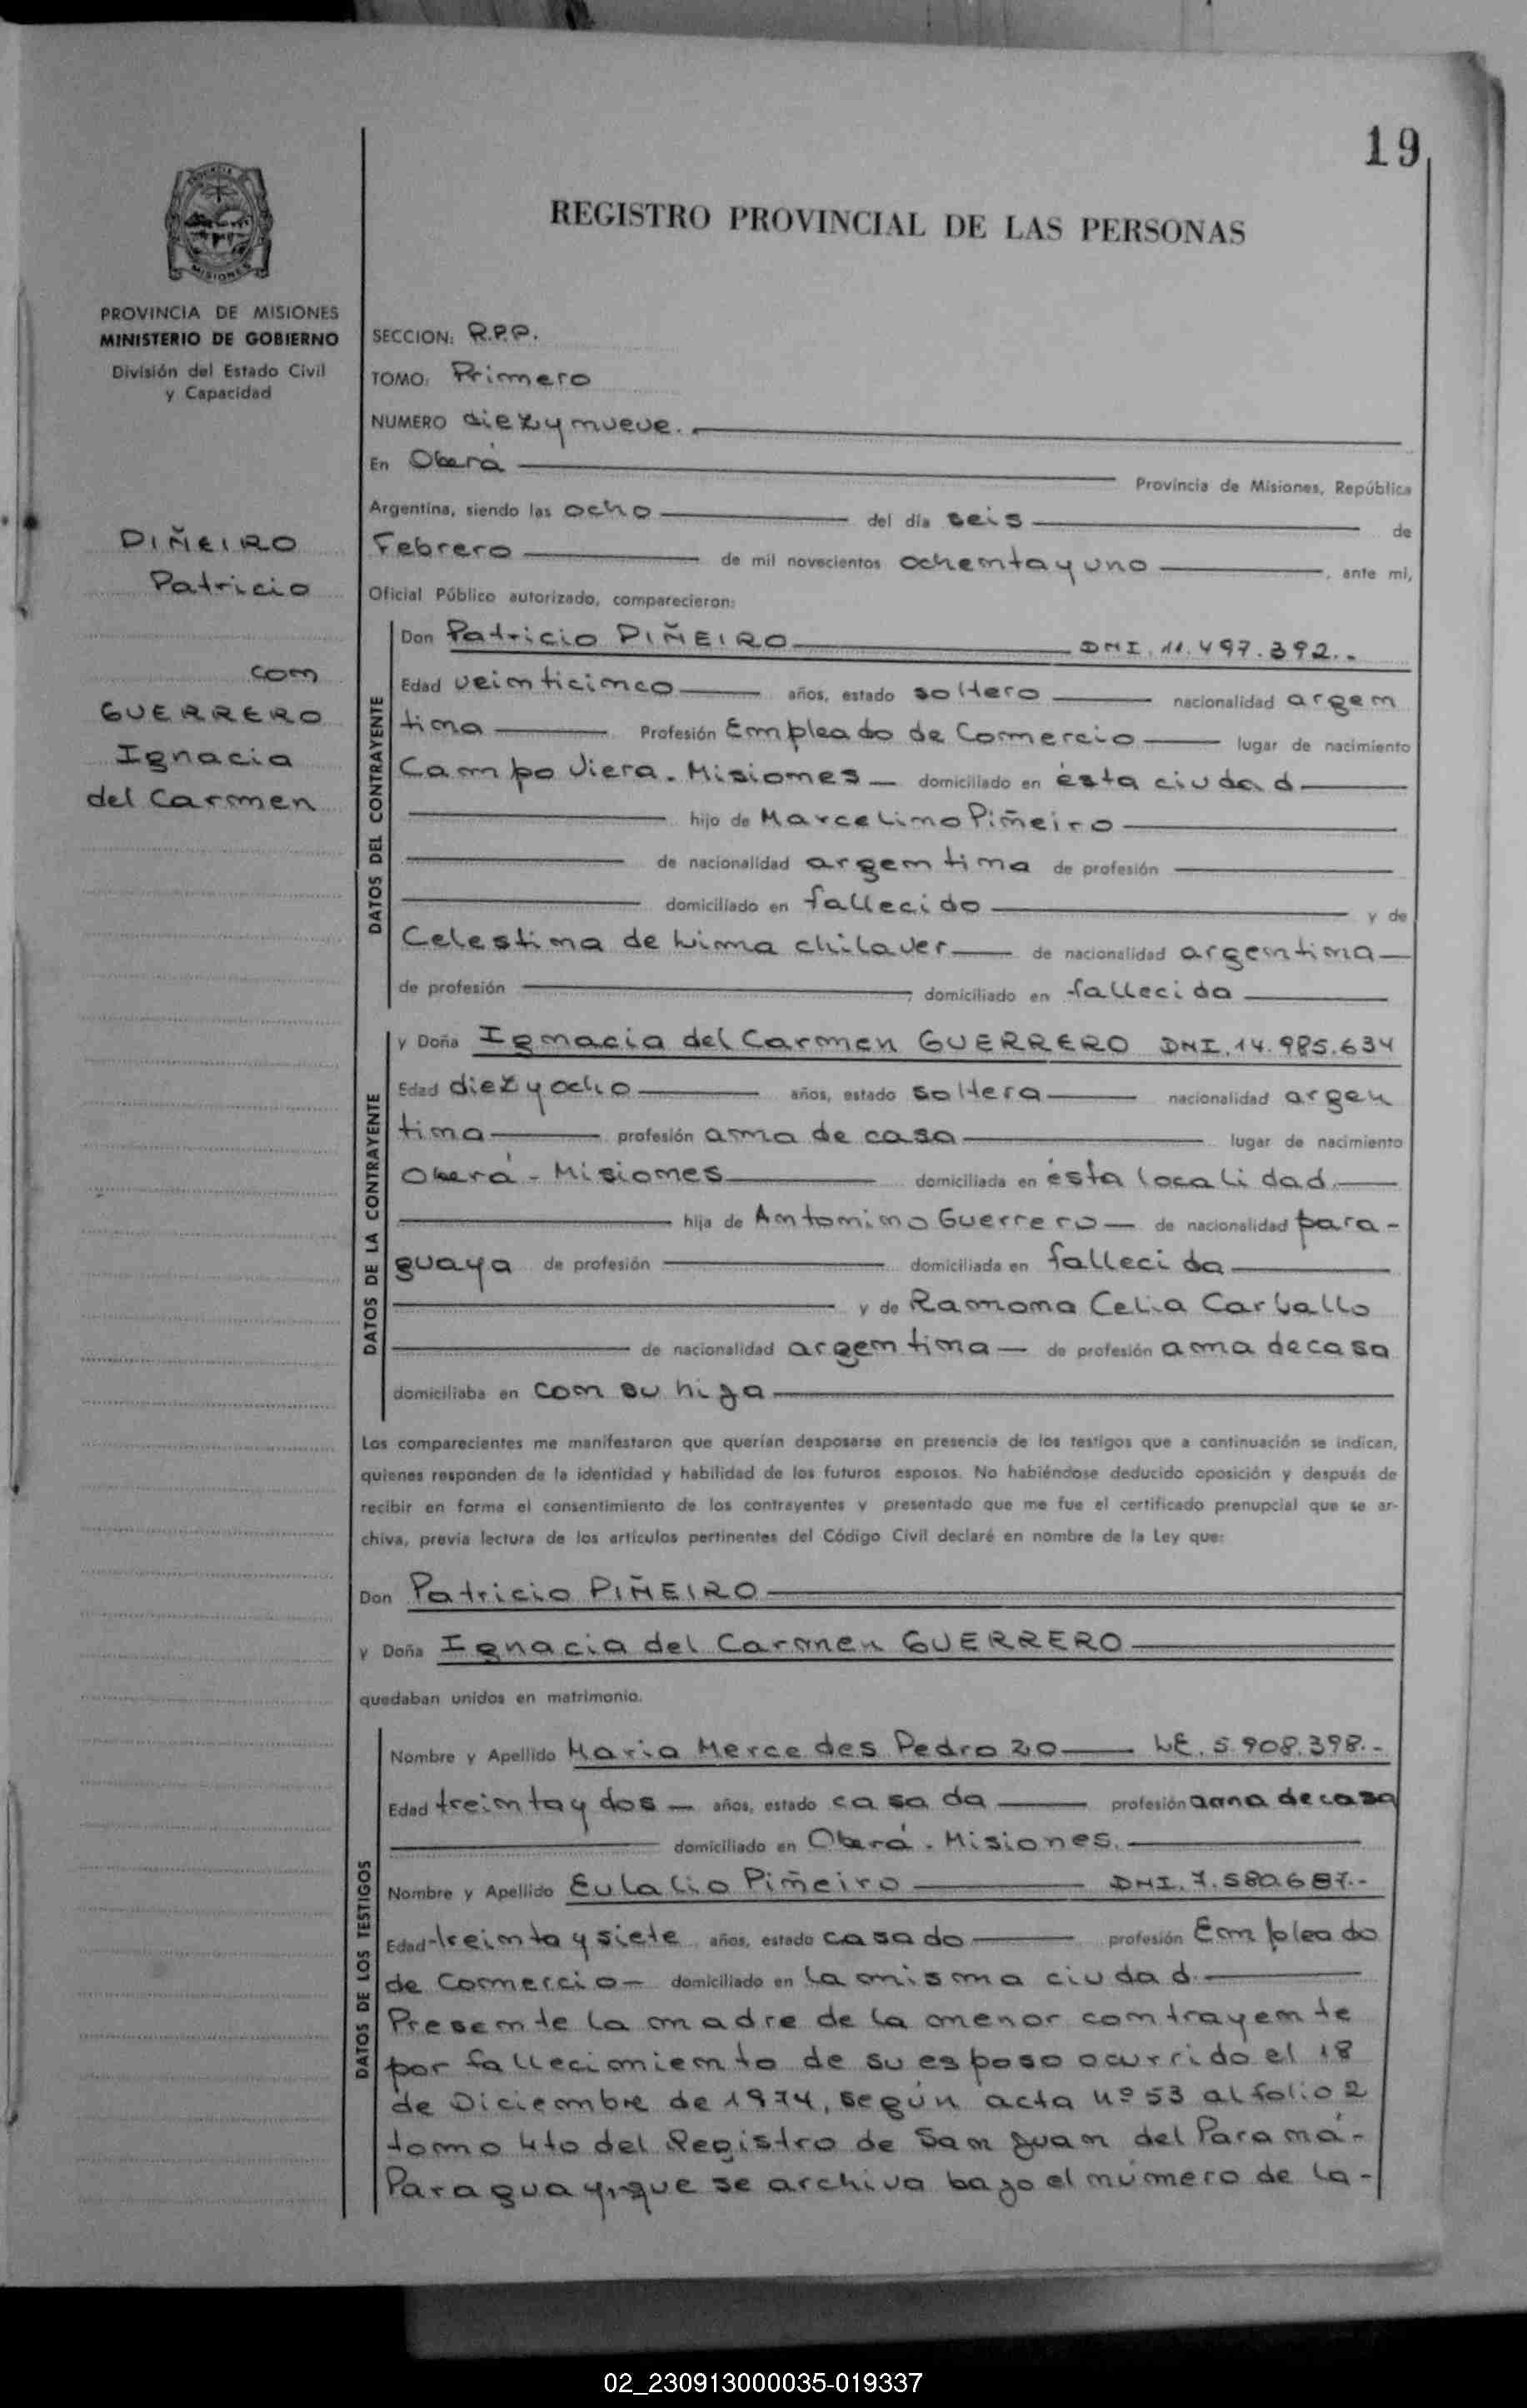 19
REGISTRO PROVINCIAL DE LAS PERSONAS
PROVINCIA DE MISIONES
MINISTERIO DE GOBIERNO
División del Estado Civil
y Capacidad
PIÑEIRO
Patricio
con
GUERRERO
Ignacia
del Carmen
SECCION: R.P.P.
TOMO: Primero
NUMERO diez y nueve.
En Oberá Provincia de Misiones, República
Argentina, siendo las ocho del día seis de
Febrero de mil novecientos ochenta y uno, ante mí,
Oficial Público autorizado, comparecieron:
DATOS DEL CONTRAYENTE
Don Patricio PIÑEIRO DNI. 11.497.392.-
Edad veinticinco años, estado soltero nacionalidad argen
tina Profesión Empleado de Comercio lugar de nacimiento
Campo Viera. Misiones domiciliado en ésta ciudad
hijo de Marcelino Piñeiro
de nacionalidad argentina de profesión
domiciliado en fallecido y de
Celestina de Lima chilaver de nacionalidad argentina
de profesión domiciliado en fallecida
DATOS DE LA CONTRAYENTE
y Doña Ignacia del Carmen GUERRERO DNI. 14.985.634
Edad diez y ocho años, estado soltera nacionalidad argen
tina profesión ama de casa lugar de nacimiento
Oberá - Misiones domiciliada en ésta localidad
hija de Antonino Guerrero de nacionalidad para-
guaya de profesión domiciliada en fallecida
y de Ramona Celia Carballo
de nacionalidad argentina de profesión ama de casa
domiciliaba en con su hija
Los comparecientes me manifestaron que querían desposarse en presencia de los testigos que a continuación se indican,
quienes responden de la identidad y habilidad de los futuros esposos. No habiéndose deducido oposición y después de
recibir en forma el consentimiento de los contrayentes y presentado que me fue el certificado prenupcial que se ar-
chiva, previa lectura de los artículos pertinentes del Código Civil declaré en nombre de la Ley que:
Don Patricio PIÑEIRO
y Doña Ignacia del Carmen GUERRERO
quedaban unidos en matrimonio.
DATOS DE LOS TESTIGOS
Nombre y Apellido Maria Mercedes Pedrozo LE. 5.908.398.-
Edad treinta y dos años, estado casada profesión ama de casa
domiciliado en Oberá. Misiones.
Nombre y Apellido Eulalio Piñeiro DNI. 7.580.687.-
Edad treinta y siete años, estado casado profesión Empleado
de Comercio domiciliado en la misma ciudad.
Presente la madre de la menor contrayente
por fallecimiento de su esposo ocurrido el 18
de Diciembre de 1974, según acta nº 53 al folio 2
tomo 4to del Registro de San Juan del Paraná-
Paraguay, que se archiva bajo el número de la-
02_230913000035-019337